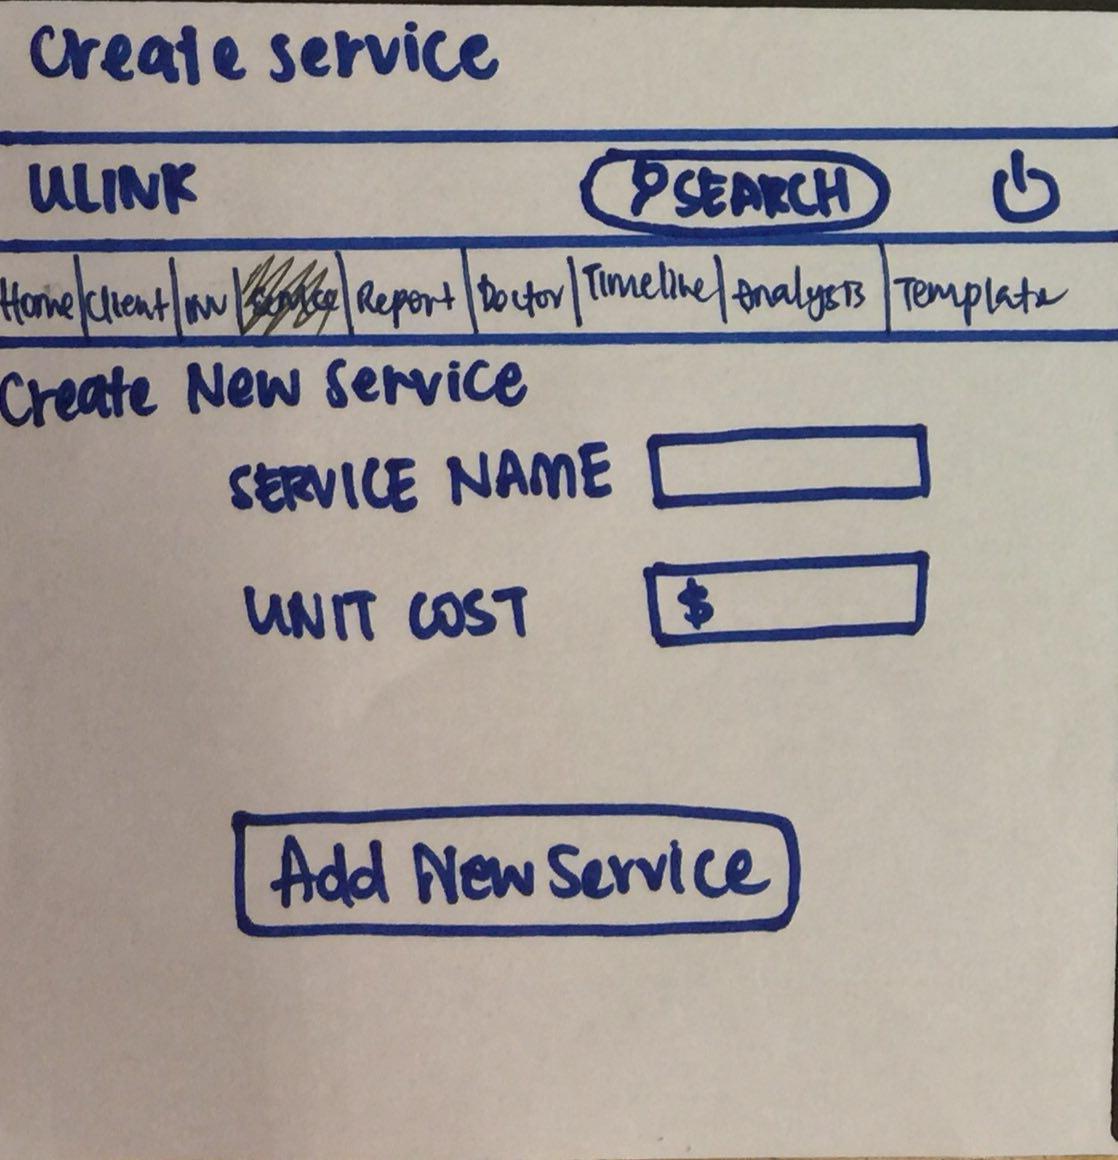 Create service
ULINK SEARCH
Home Client INV Service Report Doctor Timeline Analysis Template
Create New Service
SERVICE NAME
UNIT COST $
Add New Service